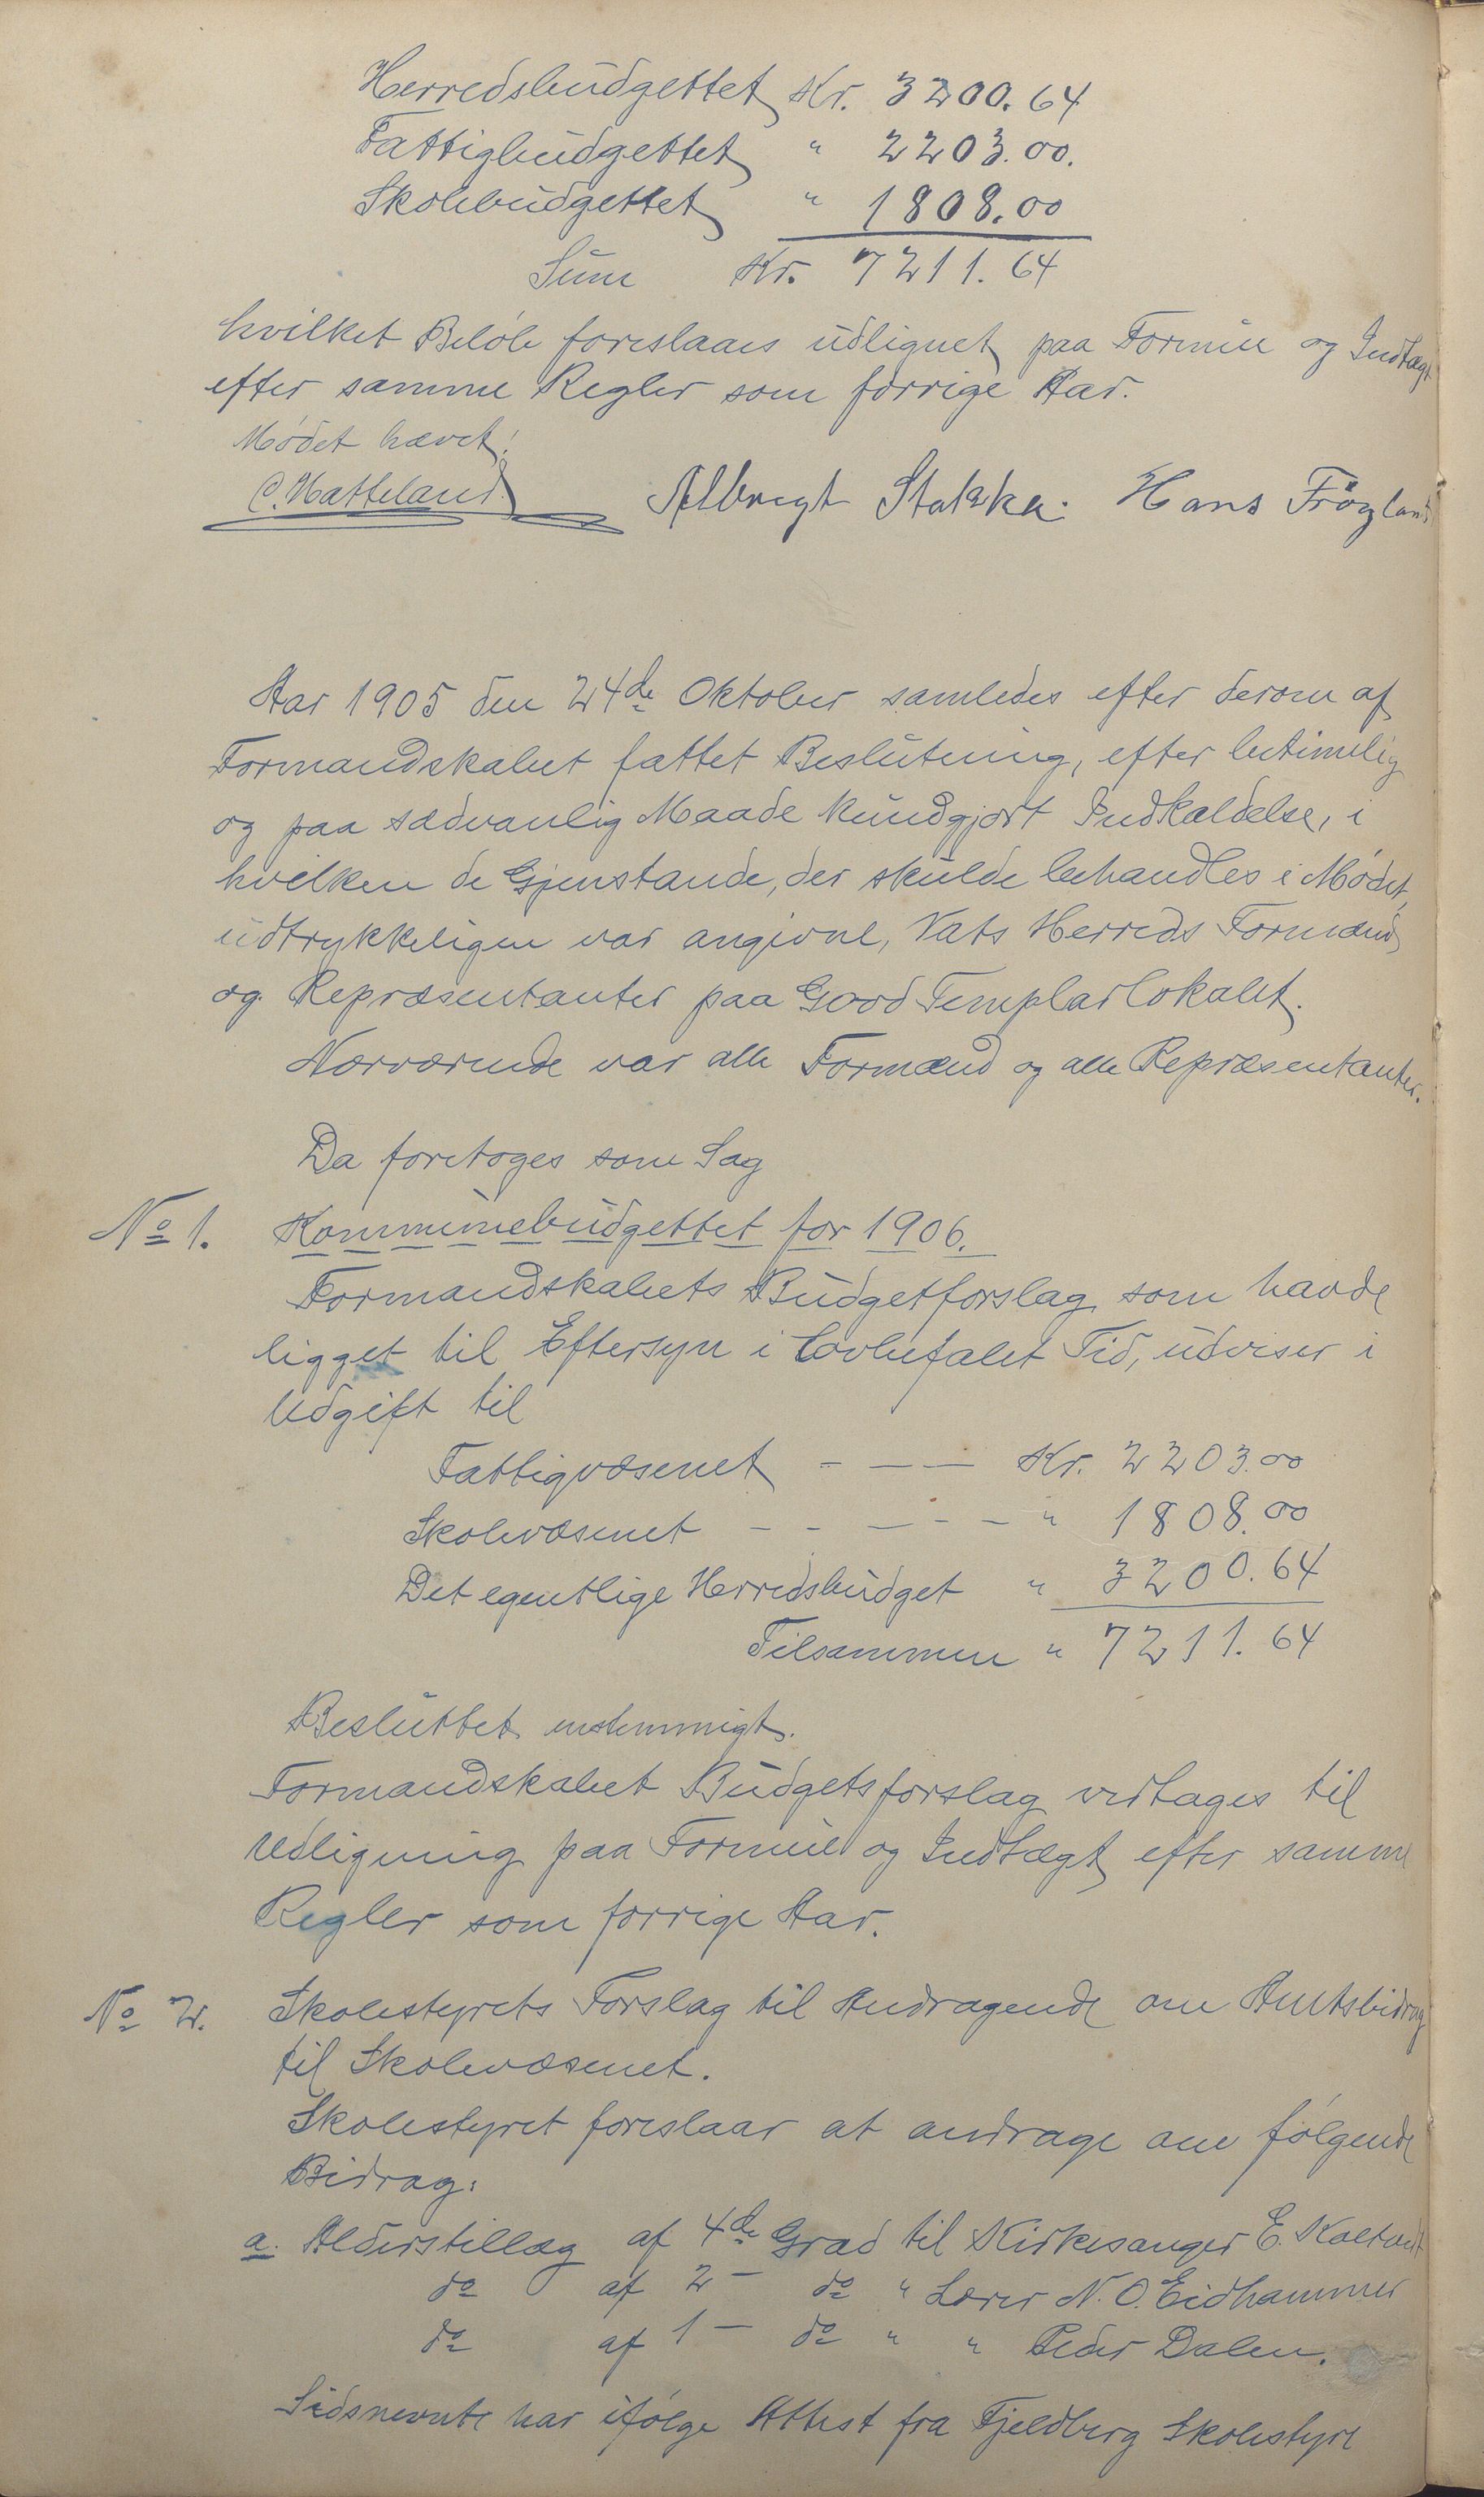 Herredsbudgettet Kr. 3200.64
Fattigbudgettet " 2203.00.
Skolebudgettet " 1808.00
Sum Kr. 7211.64
hvilket Beløb foreslaaes udlignet paa Formue og Indtægt
efter samme Regler som forrige Aar.
Mødet hævet!
C. Hatteland Albregt Stakka. Hans Frøgland
Aar 1905 den 24de Oktober samledes efter derom af
Formandskabet fattet Beslutning, efter betimelig
og paa sædvanlig Maade kundgjort Indkaldelse, i
hvilken de Gjenstande, der skulde behandles i Mødet,
udtrykkeligen var angivne, Vats Herreds Formænd
og Repræsentanter paa Good Templarlokalet.
Nærværende var alle Formænd og alle Repræsentanter.
Da foretoges som Sag
No 1. Kommunebudgettet for 1906.
Formandskabets Budgetforslag som havde
ligget til Eftersyn i lovbefalet Tid, udviser i
Udgift til
Fattigvæsenet - - - Kr. 2203.00
Skolevæsenet - - - - - " 1808.00
Det egentlige Herredsbudget " 3200.64
Tilsammen " 7211.64
Besluttet enstemmigt.
Formandskabet Budgetsforslag vedtages til
Udligning paa Formue og Indtægt efter samme
Regler som forrige Aar.
No 2. Skolestyrets Forslag til Andragende om Amtsbidrag
til Skolevæsenet.
Skolestyret foreslaar at andrage om følgende
Bidrag:
a. Alderstillæg af 4de Grad til Kirkesanger E. Kaltvedt
do af 2 - do " Lærer N. O. Eidhammer
do af 1 - do " " Peder Dalen.
Sidsnevnte har ifølge Attest fra Fjeldberg Skolestyre